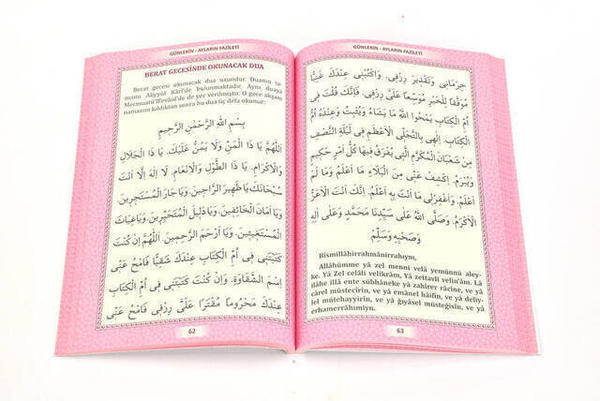 GÜNLERİN - AYLARIN FAZİLETİ
BERAT GECESİNDE OKUNACAK DUA
Berat gecesi okunacak dua usundur. Duanın ta-
mamı Aliyyül Kârî'de bulunmaktadır. Aynı duaya
Mecmuatü'l'evrâd'de de yer verilmiştir. O gece akşam
namazını kıldıktan sonra bu dua üç defa okunur:
بِسْمِ اللهِ الرَّحْمٰنِ الرَّحِيمِ
اَللّٰهُمَّ يَا ذَا الْمَنِّ وَلَا يَمُنُّ عَلَيْكَ. يَا ذَا الْجَلَالِ
وَالْاِكْرَامِ. يَا ذَا الطَّوْلِ وَالْاِنْعَامِ. لَا اِلٰهَ اِلَّا اَنْتَ
سُبْحَانَكَ يَا ظَهِيرَ الرَّاجِينَ. وَيَا جَارَ الْمُسْتَجِرِينَ.
وَيَا اَمَانَ الْخَائِفِينَ. وَيَا دَلِيلَ الْمُتَحَيِّرِينَ. وَيَا غِيَاثَ
الْمُسْتَغِيثِينَ. وَيَا اَرْحَمَ الرَّحِمِينَ. اَللّٰهُمَّ اِنْ كُنْتَ
كَتَبْتَنِى فِى اُمِّ الْكِتَابِ عِنْدَكَ شَقِيًّا فَامْحُ عَنِّى
اِسْمَ الشَّقَاوَةِ. وَاِنْ كُنْتَ كَتَبْتَنِى فِى اُمِّ الْكِتَابِ
عِنْدَكَ مَحْرُومًا مُقَتَّرًا عَلَىَّ رِزْقِى فَامْحُ عَنِّى
62
GÜNLERİN - AYLARIN FAZİLETİ
حِرْمَانِى وَتَقْدِيرَ رِزْقِى. وَاكْتُبْنِى عِنْدَكَ غَنِيًّا
مُوَفَّقًا لِلْخَيْرِ مُوَسِّعًا عَلَىَّ رِزْقِى. فَاِنَّكَ قُلْتَ فِى
اُمِّ الْكِتَابِ يَمْحُوا اللهُ مَا يَشَاءُ وَيُثْبِتُ وَعِنْدَهُ اُمُّ
الْكِتَابِ. اِلٰهِى بِالتَّجَلِّى الْاَعْظَمِ فِى لَيْلَةِ النِّصْفِ
مِنْ شَعْبَانَ الْمُكَرَّمِ الَّتِى يُفْرَقُ فِيهَا كُلُّ اَمْرٍ حَكِيمٍ
وَيُبْرَمُ. اِكْشِفْ عَنِّى مِنَ الْبَلَاءِ مَا اَعْلَمُ وَمَا لَمْ
اَعْلَمْ. وَاغْفِرْلِى مَا اَنْتَ بِهِ اَعْلَمُ. اِنَّكَ اَنْتَ الْاَعَزُّ
الْاَكْرَمُ. وَصَلَّى اللهُ عَلَى سَيِّدِنَا مُحَمَّدٍ وَعَلَى اٰلِهِ
وَصَحْبِهِ وَسَلَّمَ
Bismillâhirrahmânirrahym.
Allâhümme yâ zel menni velâ yemünnü aley-
ke. Yâ Zel celâli velikrâm, Yâ zettavli velin'âm. Lâ
ilâhe illâ ente sübhâneke yâ zahirer râcine, ve yâ
cârel müstecirîn, ve yâ emânel hâifîn, ve yâ deliy-
lel mütehayyirîn, ve yâ ğıyâsel müsteğisîn, ve yâ
erhamerrahımiyn.
63